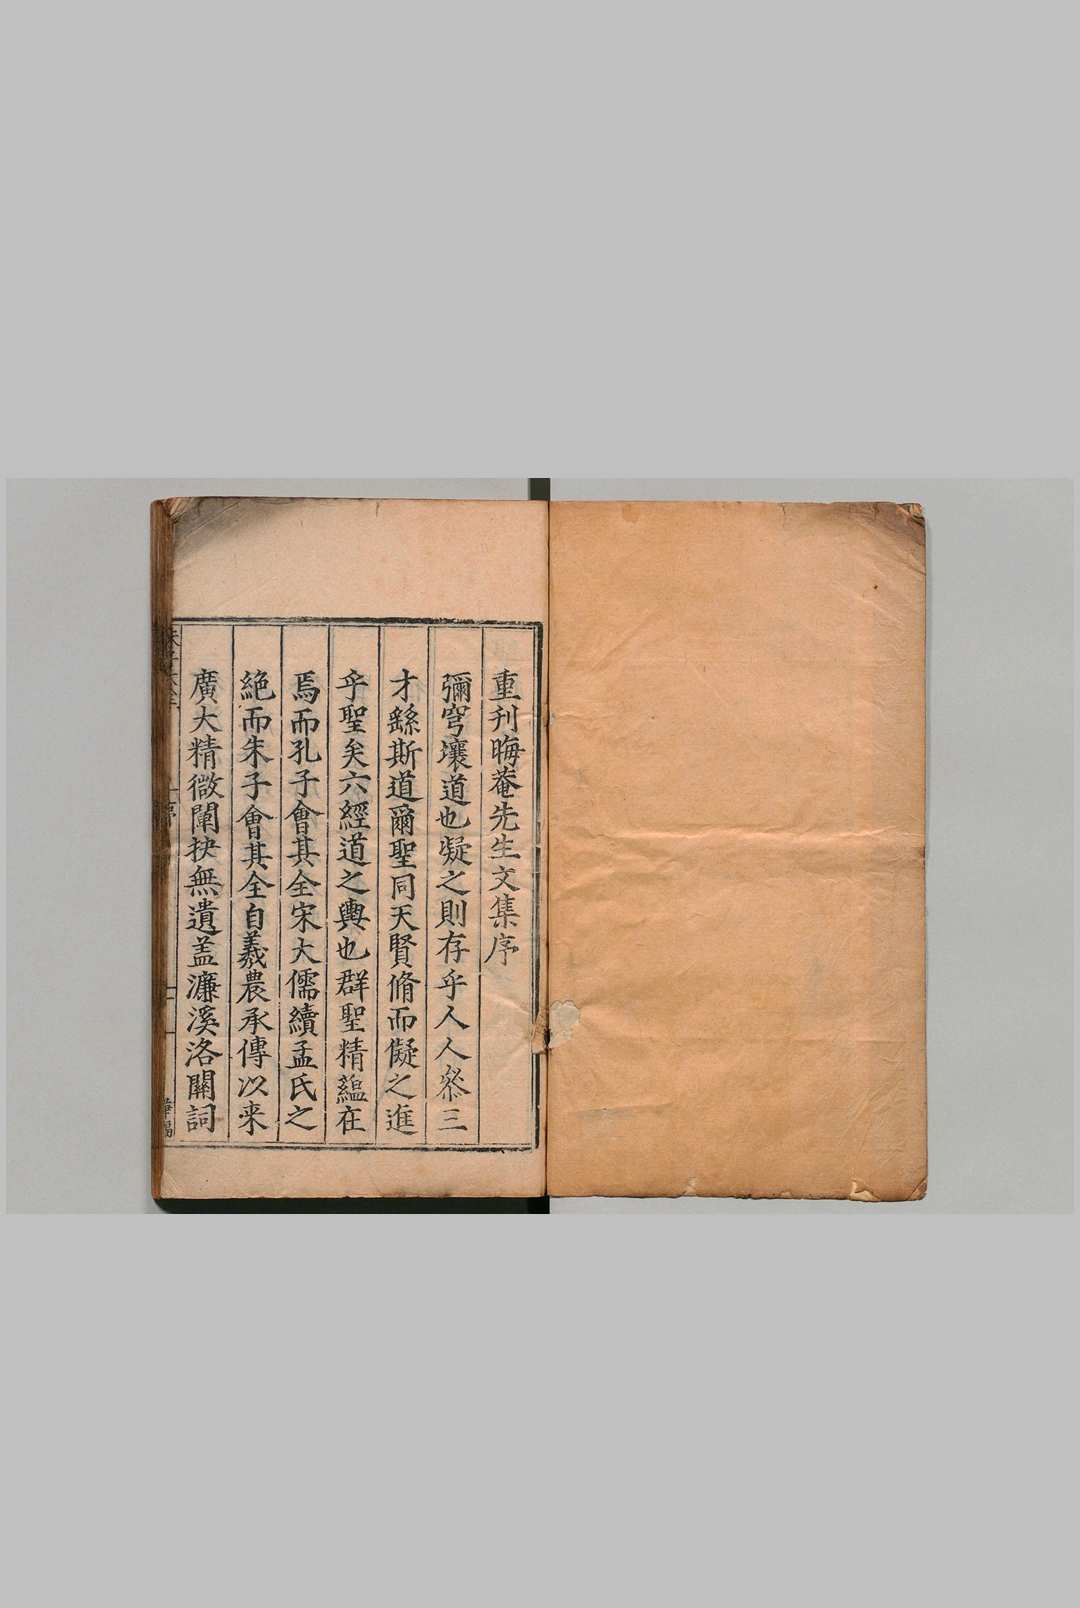 重刋晦菴先生文集序
彌穹壤道也凝之則存乎人人叅三
才繇斯道爾聖同天賢脩而儗之進
乎聖矣六經道之輿也群聖精藴在
焉而孔子會其全宋大儒續孟氏之
絶而朱子會其全自羲農承傳以来
廣大精微闡抉無遺盖濂溪洛關詞
序